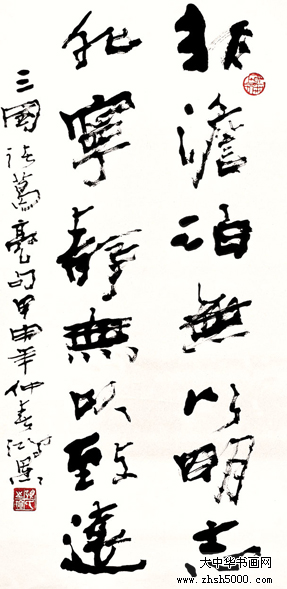 非澹泊無以明志
非寧靜無以致遠
三國諸葛亮句甲申年仲春
大中华书画网
www.zhsh5000.com